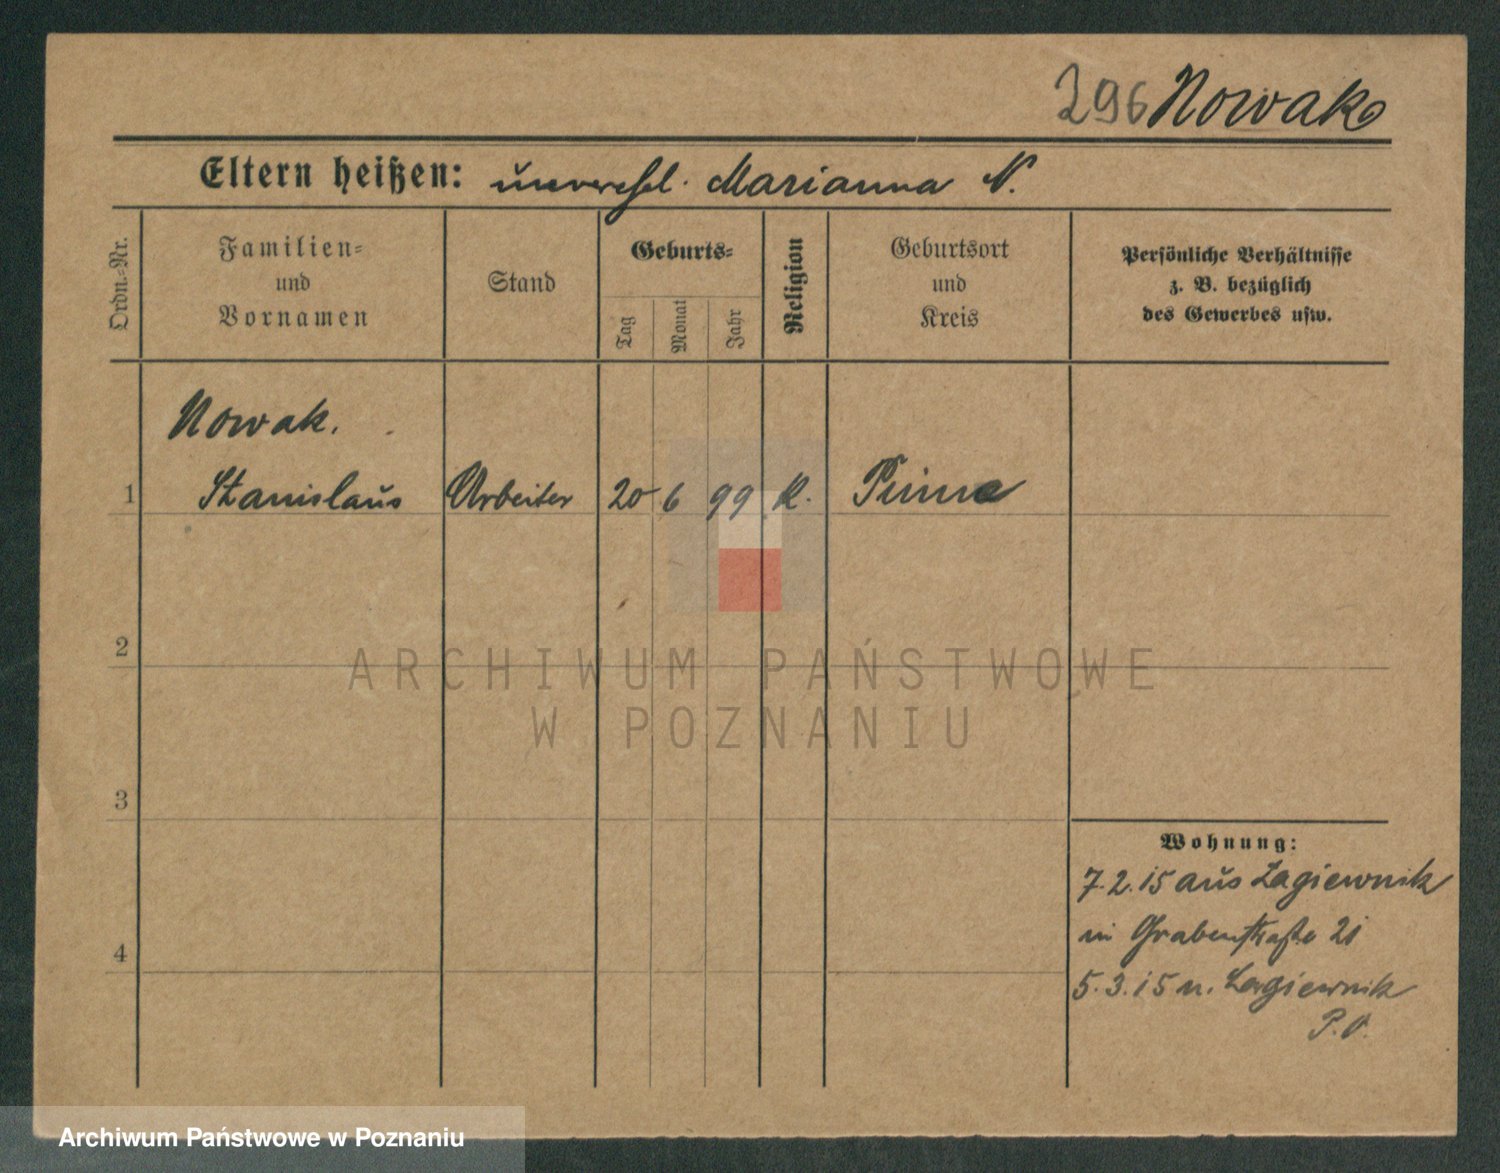 296 Nowak
Eltern heißen: unverehel. Marianna N.
Ordn.=Nr.
Familien=
und
Vornamen
Stand
Geburts=
Tag
Monat
Jahr
Religion
Geburtsort
und
Kreis
Persönliche Verhältnisse
z. B. bezüglich
des Gewerbes usw.
Nowak.
1 Stanislaus Arbeiter 20 6 99 K. Pinne
2
3
4
Wohnung:
7.2.15 aus Lagiewnik
in Grabenstraße 21
5.3.15 n. Lagiewnik
P.O.
ARCHIWUM PAŃSTWOWE
W POZNANIU
Archiwum Państwowe w Poznaniu